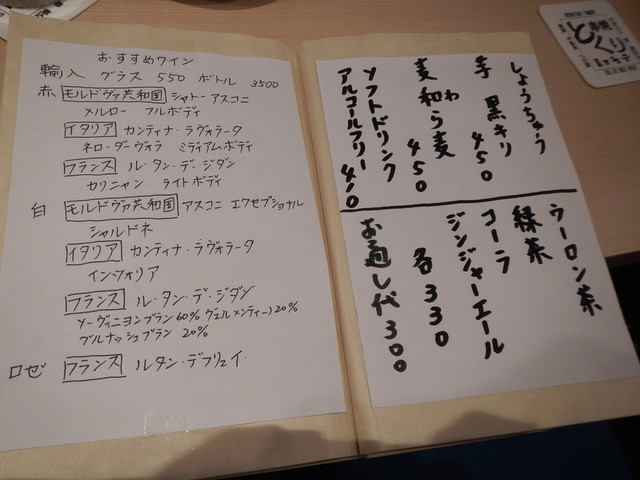 おすすめワイン
輸入 グラス 550 ボトル 3500
赤 モルドヴァ共和国 シャトー アスコニ
メルロー フルボディ
イタリア カンティナ・ラヴォラータ
ネロ・ダーヴォラ ミディアムボディ
フランス ル・タン・デ・ジダン
カリニャン ライトボディ
白 モルドヴァ共和国 アスコニ エクセプショナル
シャルドネ
イタリア カンティナ・ラヴォラータ
インツォリア
フランス ル・タン・デ・ジダン
ソーヴィニヨンブラン60% ヴェルメンティーノ20%
グルナッシュブラン 20%
ロゼ フランス ルタン・デフリュイ.
しょうちゅう
芋 黒キリ 450
麦 和ら麦 450
わ
ソフトドリンク
アルコールフリー 410
ウーロン茶
緑茶
コーラ
ジンジャーエール
各330
お通し代300
とくり